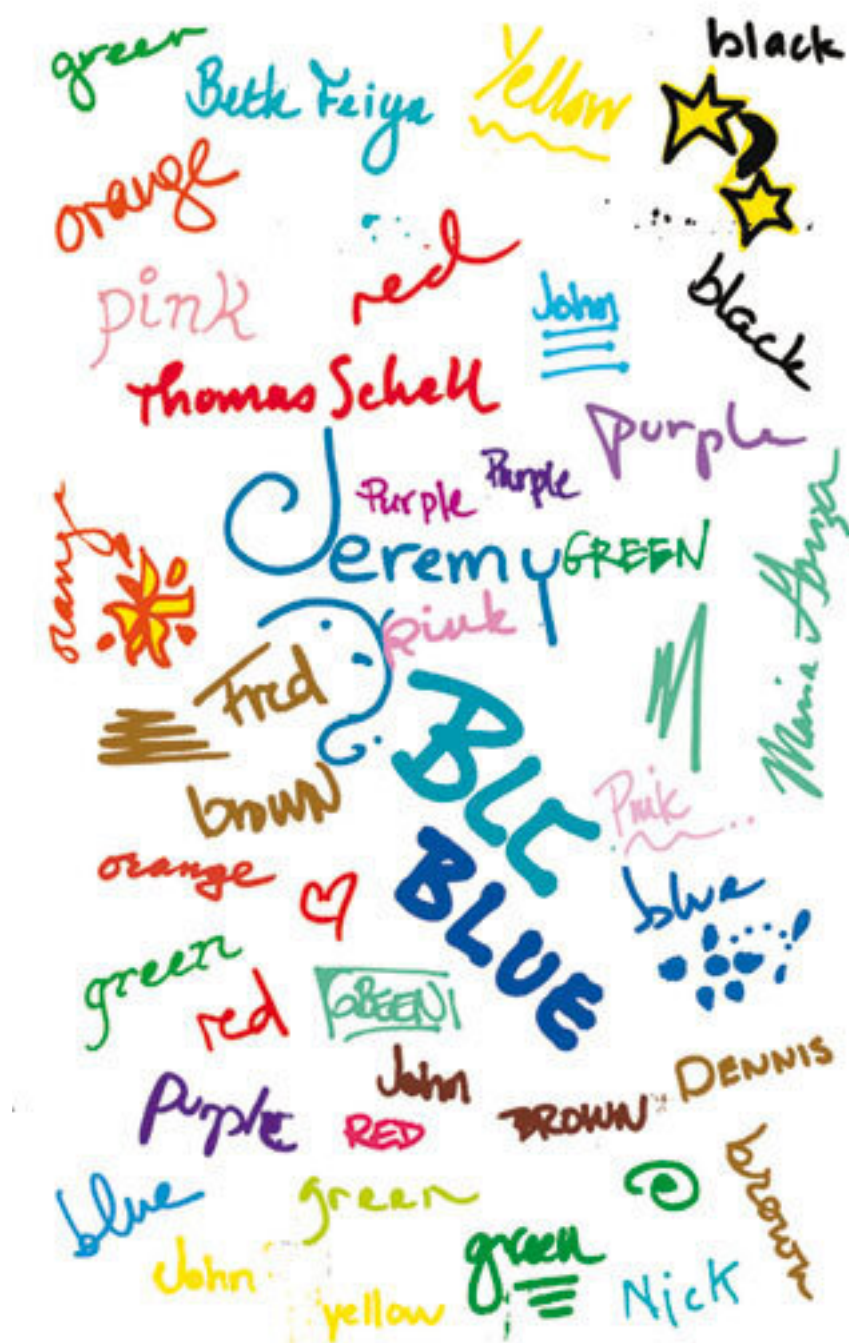 green
Beth Feiya
Yellow
black
orange
red
pink
John
black
Thomas Schell
purple
Purple
Purple
Jeremy
GREEN
orange
pink
Fred
BLC
brown
Pink
orange
BLUE
blue
green
red
GREEN
John
DENNIS
purple
RED
BROWN
blue
green
brown
John
green
yellow
Nick